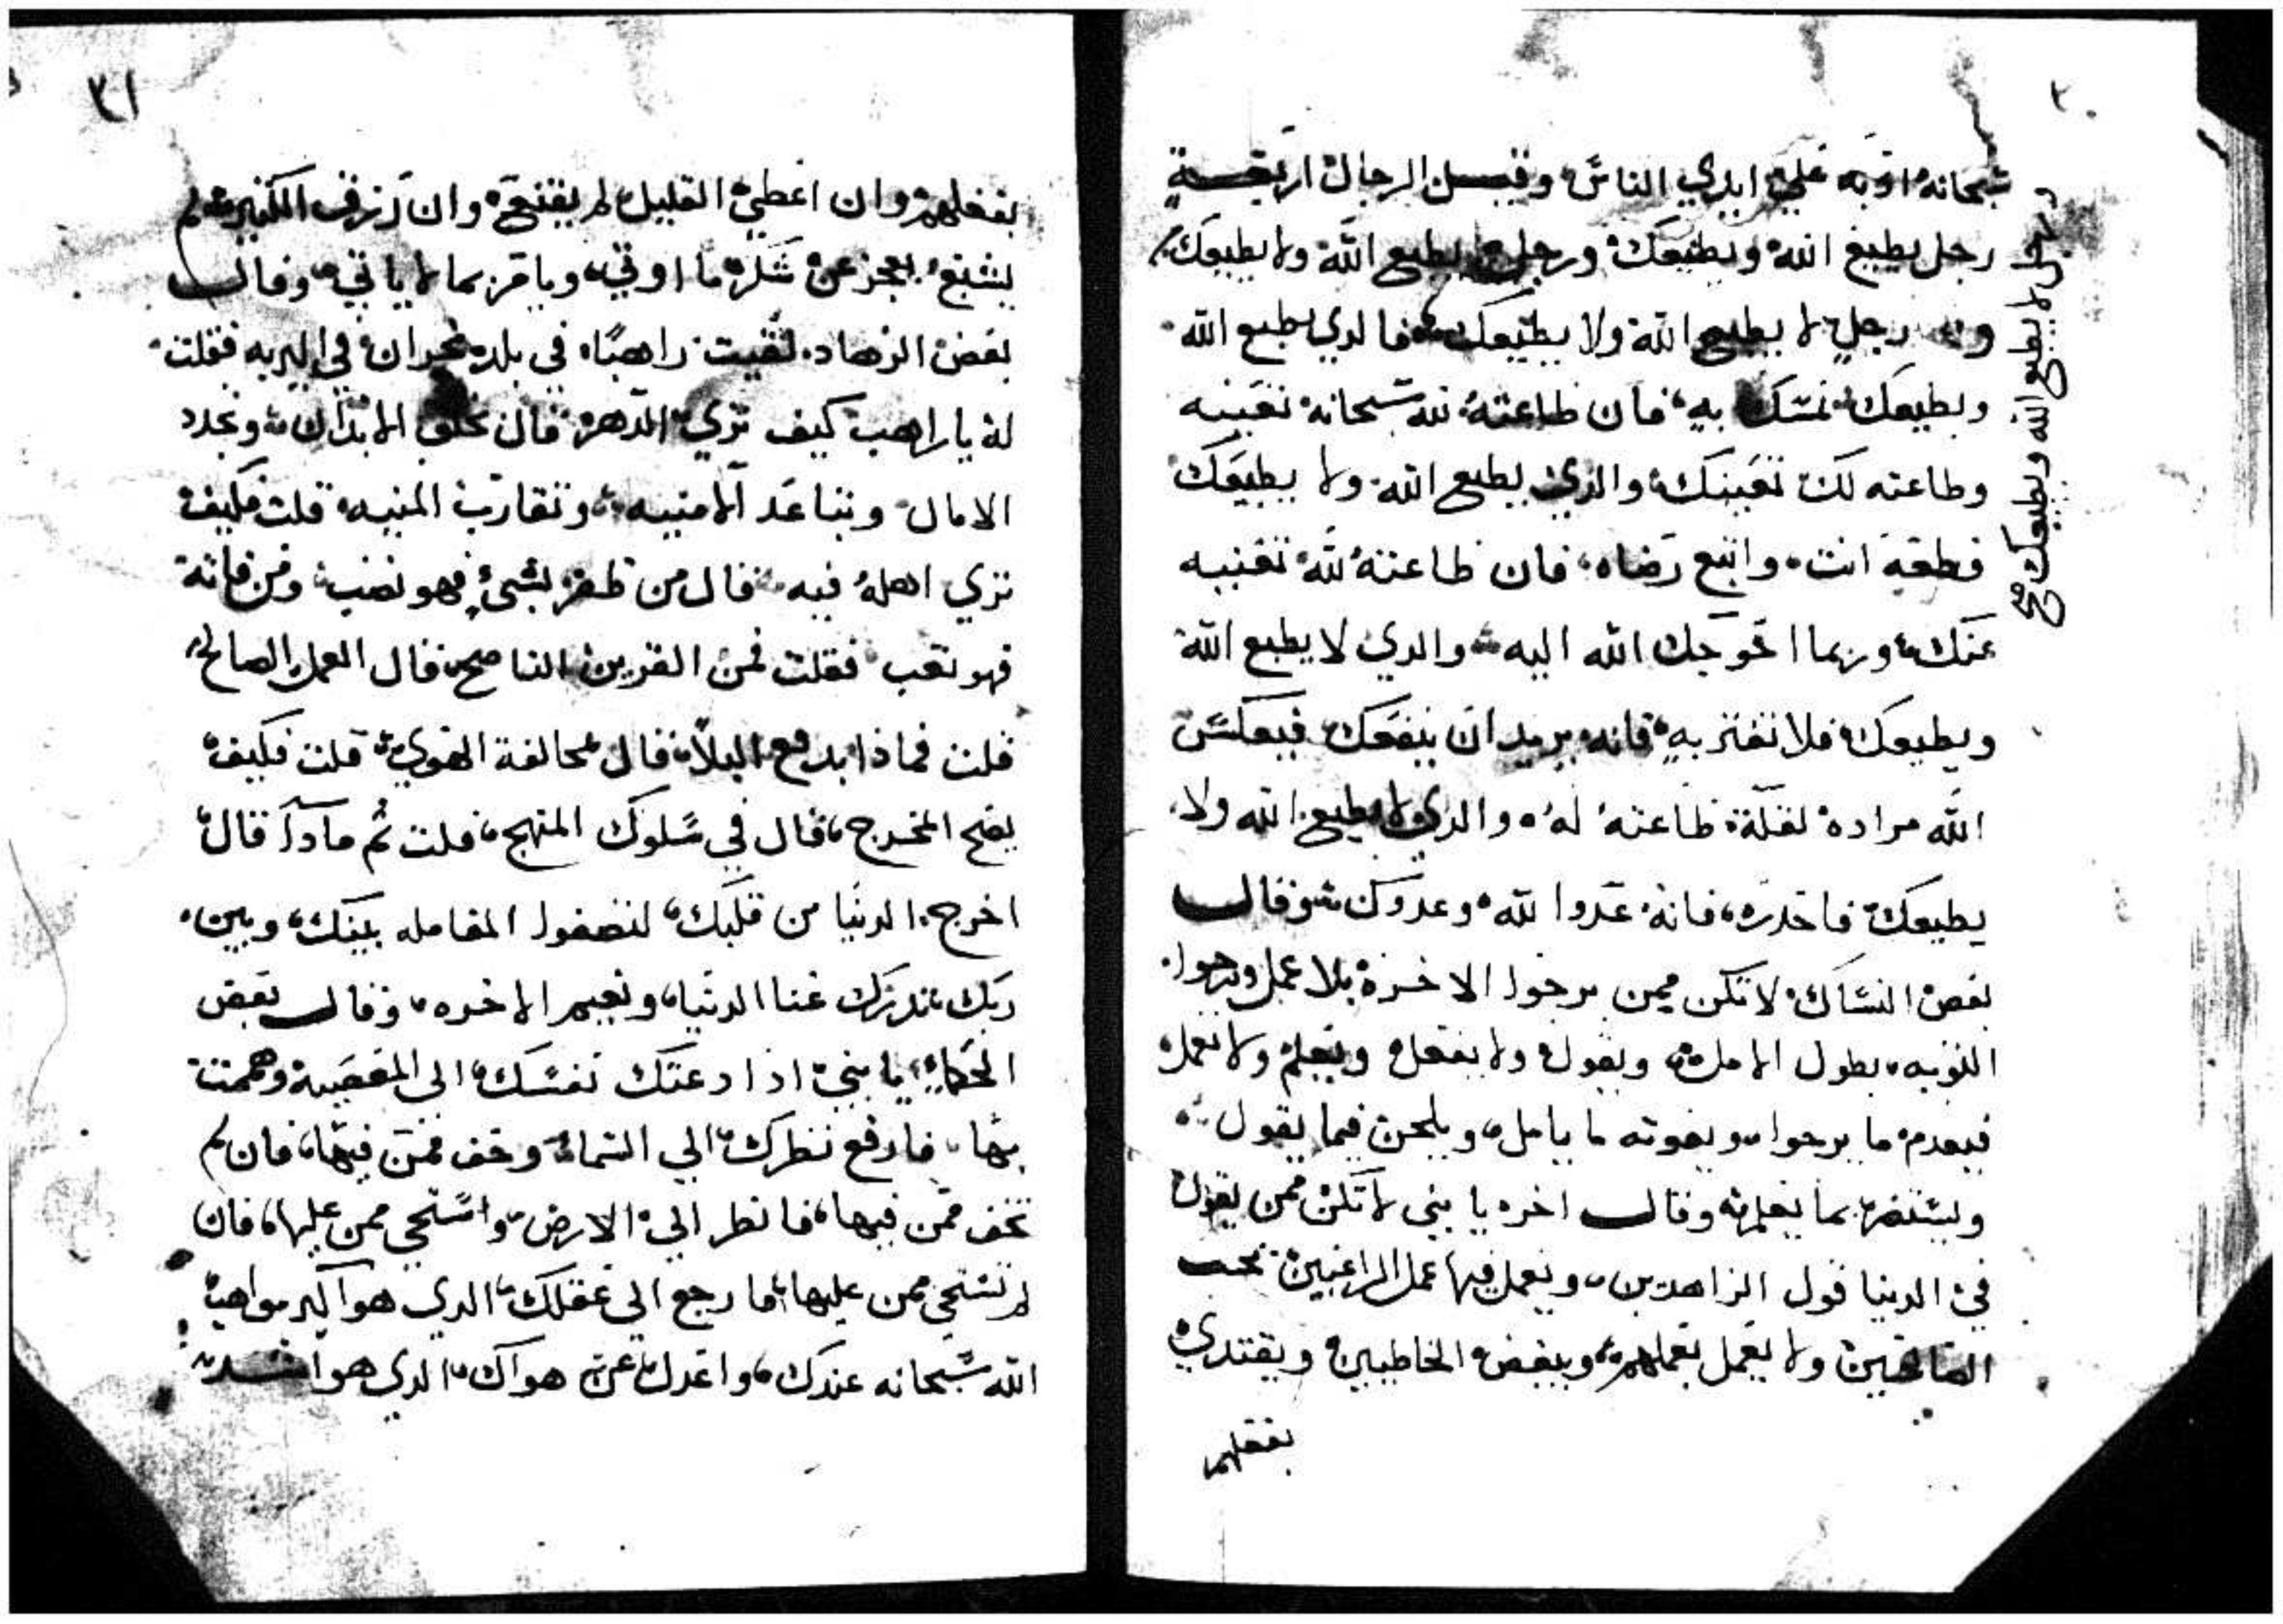 ٣٠
سبحانه اوبه علي ايدي الناس وقيل الرجال اربعة
رجل يطيع الله ويطيعك ورجل يطيع الله ولا يطيعك
ورجل لا يطيع الله ولا يطيعك فالدي يطيع الله
ويطيعك تمسك به فان طاعته لله سبحانه تعينه
وطاعته لك تعينك والذي يطيع الله ولا يطيعك
فطعه انت واتبع رضاه فان طاعته لله تغنيه
عنك وربما احوجك الله اليه والدي لا يطيع الله
ويطيعك فلا تغتر به فانه يريد ان ينفعك فيعكس
الله مراده لقلة طاعته له والدي لا يطيع الله ولا
يطيعك فاحدره فانه عدوا لله وعدوك وقال
بعض النساك لا تكن ممن يرجوا الاخرة بلا عمل ويرجوا
التوبه بطول الامل ويقول ولا يفعل ويعلم ولا يعمل
فيعدم ما يرجوا ويفوته ما يامل ويلحن فيما يقول
ويستضر بما يعلم وقال اخر يا بني لا تكن ممن يقول
في الدنيا قول الزاهدين ويعمل فيها عمل الراغبين يحب
الصالحين ولا يعمل بعملهم ويبغض الخاطيين ويقتدي
بفعلهم
ورجل لا يطيع الله ويطيعك صح
٣١
بفعلهم وان اعطي القليل لم يقنع وان رزق الكثير لم
يشبع يعجز عن شكر ما اوتي ويامر بما لا ياتي وقال
بعض الزهاد لقيت راهبا في بلد نجران في البريه فقلت
له يا راهب كيف تري الدهر قال يخلق الابدان ويجدد
الامال ويباعد الامنيه ويقارب المنيه قلت فكيف
تري اهله فيه قال من ظفر بشيء فهو نصب ومن فاته
فهو تعب فقلت فمن القرين الناصح قال العمل الصالح
قلت فماذا يدفع البلا قال مخالفة الهوي قلت فكيف
يصح المخرج قال في سلوك المنهج قلت ثم مادا قال
اخرج الدنيا من قلبك لتصفوا المعامله بينك وبين
ربك تدرك غنا الدنيا ونعيم الاخره وقال بعض
الحكماء يا بني اذا دعتك نفسك الي المعصيه وهممت
بها فارفع نظرك الي السماء وخف ممن فيها فان لم
تخف ممن فيها فانظر الي الارض واستحي ممن عليها فان
لم تستحي ممن عليها فارجع الي عقلك الدي هو اكبر مواهب
الله سبحانه عندك واعدل عن هواك الدي هو اشد